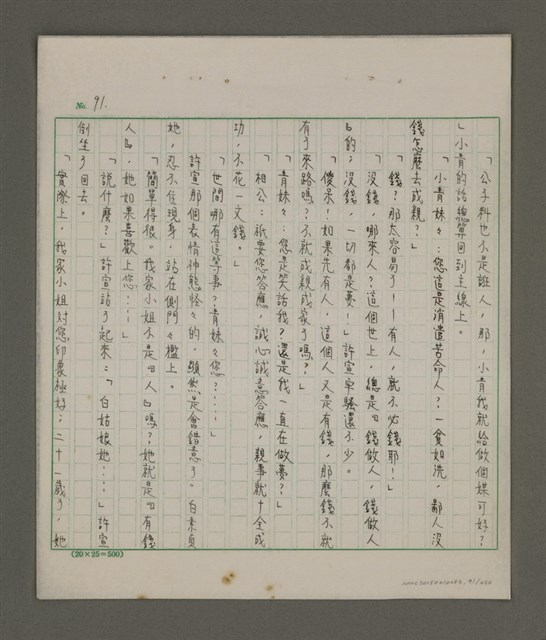 No. 91.
「公子料也不是誑人，那，小青我就給做個媒可好？
」小青的話總算回到主線上。
「小青妹々：您這是消遣苦命人？一貧如洗，鄙人沒
錢怎麼去成親？」
「錢？那太容易了！——有人，就不必錢耶！」
「沒錢，哪來人？這個世上，總是『錢做人，錢做人
』的；沒錢，一切都是夢！」許宣牢騷還不少。
「傻呆！如果先有人，這個人又是有錢，那麼錢不就
有了來路嗎？不就成親成家了嗎？」
「青妹々：您是笑話我？還是我一直在做夢？」
「相公：祇要您答應，誠心誠意答應，親事就十全成
功，不花一文錢。」
「世間哪有這等事？青妹々您？……」
許宣那個表情神態怪々的，顯然是會錯意了。白素貞
她，忍不住現身，站在側門々檻上。
「簡單得很。我家小姐不是『人』嗎？她就是『有錢
人』，她如果喜歡上您……」
「說什麼？」許宣站了起來：「白姑娘她……」許宣
倒坐了回去。
「實際上，我家小姐對您印象極好；二十一歲了，她
(20×25=500)